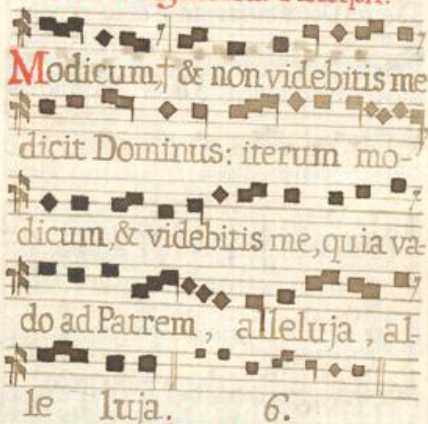 Modicum,† & non videbitis me
dicit Dominus: iterum mo-
dicum,& videbitis me,quia va-
do ad Patrem, alleluja, al-
le luja. 6.